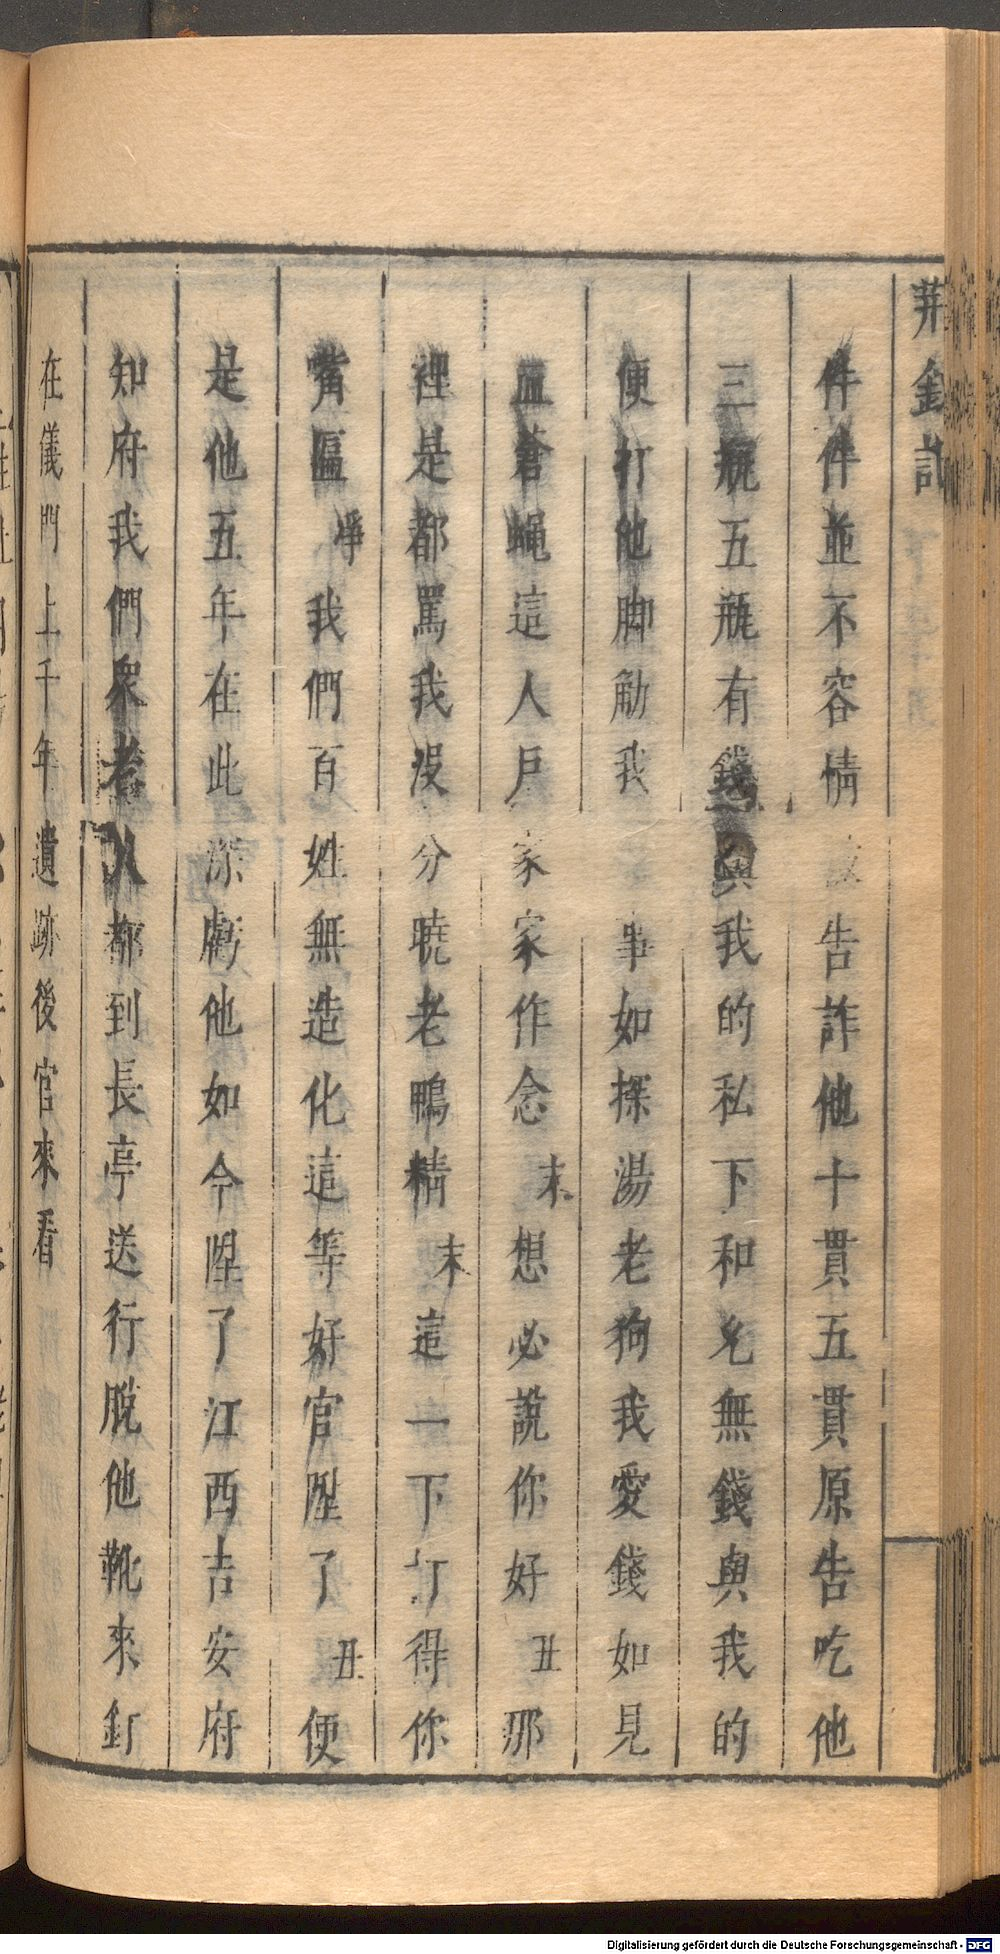 荆釵記
件件並不容情告詐他十貫五貫原告吃他
三瓶五瓶有錢與我的私下和允無錢與我的
便打他脚觔我事如探湯老狗我愛錢如見
血蒼蠅這人戶家家作念末想必說你好丑那
裡是都罵我没分曉老鴨精末這一下打得你
嘴匾净我們百姓無造化這等好官陞了丑便
是他五年在此深虧他如今陞了江西吉安府
知府我們衆老人都到長亭送行脫他靴來釘
在儀門上千年遺跡後官來看
Digitalisierung gefördert durch die Deutsche Forschungsgemeinschaft - DFG